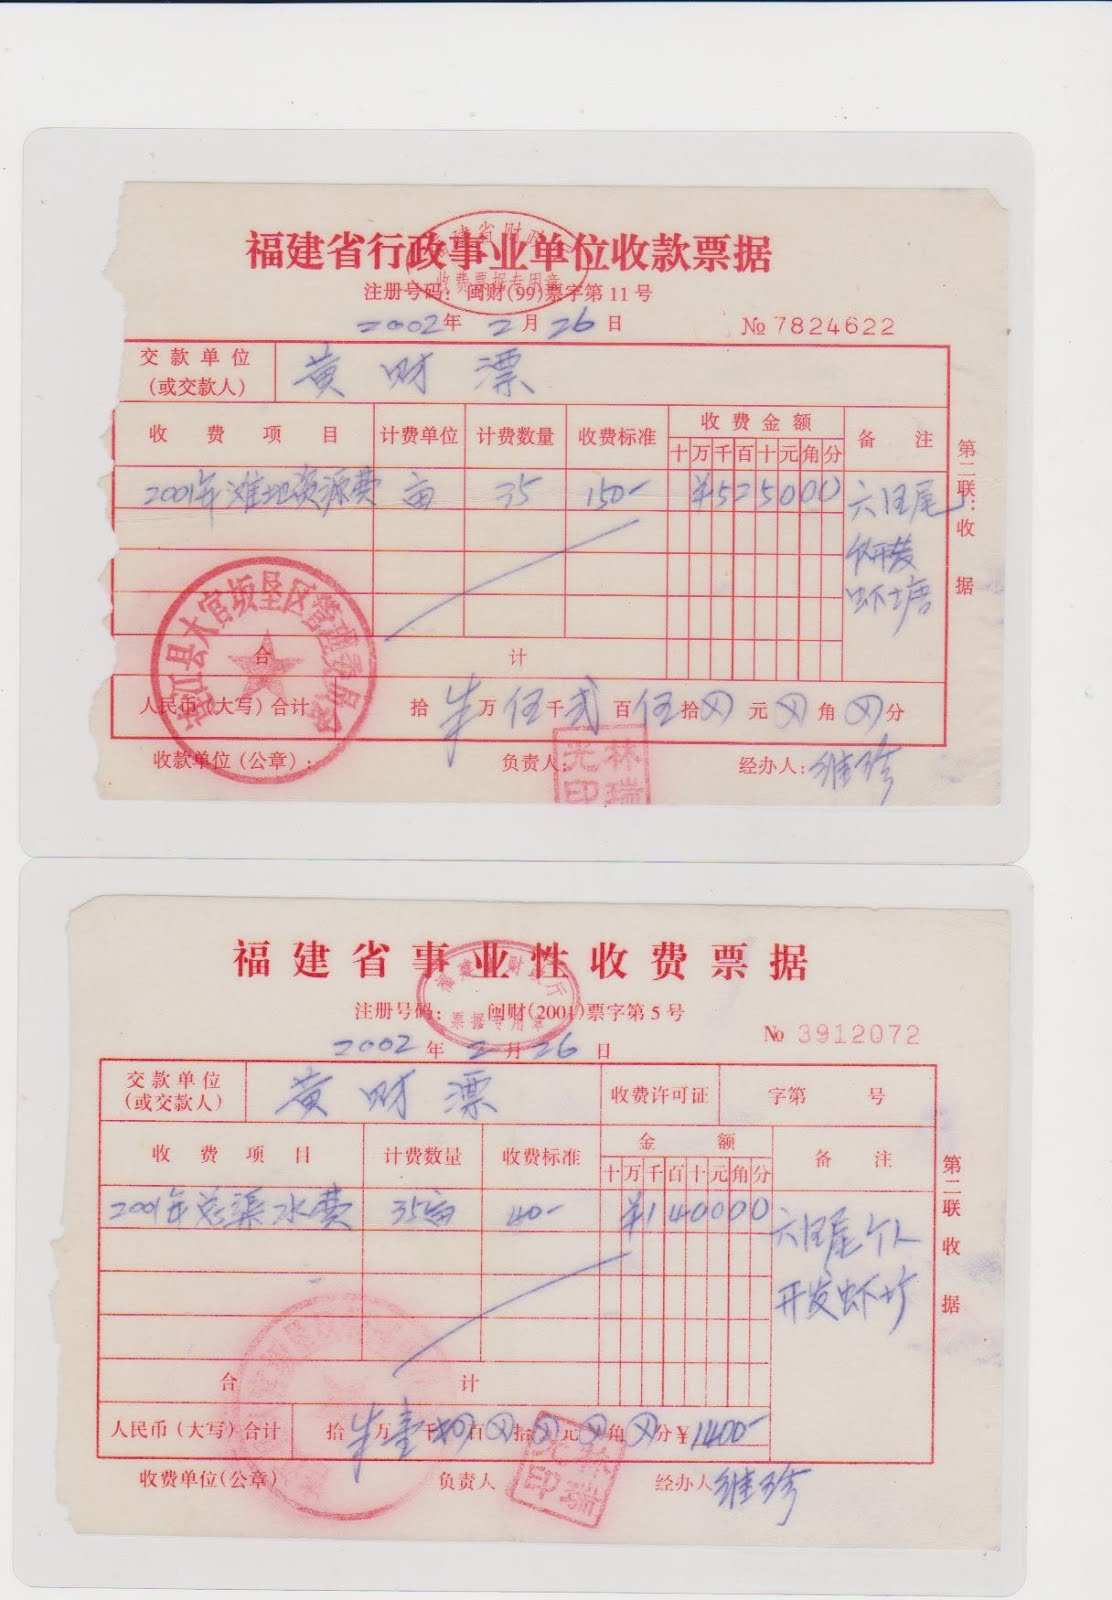 福建省行政事业单位收款票据
福建省财政
收费票据专用章
注册号码：闽财(99)票字第 11 号
2002年 2月26日 № 7824622
交款单位
(或交款人) 黄财漂
收费项目 计费单位 计费数量 收费标准 收费金额 备注
十万千百十元角分
2001年滩地资源费 亩 35 150- ¥525000 六汪尾
开发
虾塘
第二联：收据
合计
人民币(大写)合计 拾 万伍千贰百伍拾⊗元⊗角⊗分
收款单位(公章)： 负责人： 经办人：维珍
江县大官坂垦区管理委员会
林瑞光印
福建省事业性收费票据
福建省财政厅
票据专用章
注册号码：闽财(2001)票字第 5 号
2002年 2月26日 № 3912072
交款单位
(或交款人) 黄财漂 收费许可证 字第 号
收费项目 计费数量 收费标准 金额 备注
十万千百十元角分
2001年总渠水费 35亩 40- ¥140000 六汪尾个人
开发虾圹
第二联收据
合计
人民币(大写)合计 拾 万壹千肆百⊗拾⊗元⊗角⊗分 ¥1400-
收费单位(公章) 负责人 经办人维珍
林瑞光印